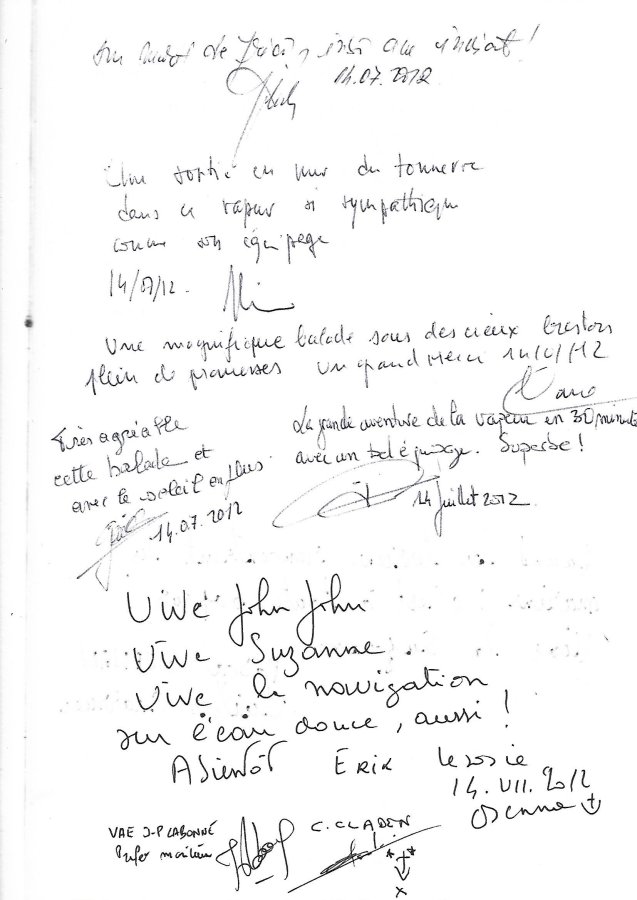 14.07.2012
Une sortie en mer du tonnerre
dans ce vapeur si sympathique
comme son équipage
14/07/12.
Une magnifique balade sous des cieux brestois
plein de promesses Un grand merci 14/07/12
Très agréable
cette balade et
avec le soleil en plus.
14.07.2012
La grande aventure de la vapeur en 30 minutes
avec un bel équipage. Superbe!
14 Juillet 2012
Vive John John
Vive Suzanne
Vive la navigation
sur l'eau douce, aussi!
A bientôt Erik
14.VII.2012
VAE J-P LABONNÉ
Préfet maritime
C. CLADEN